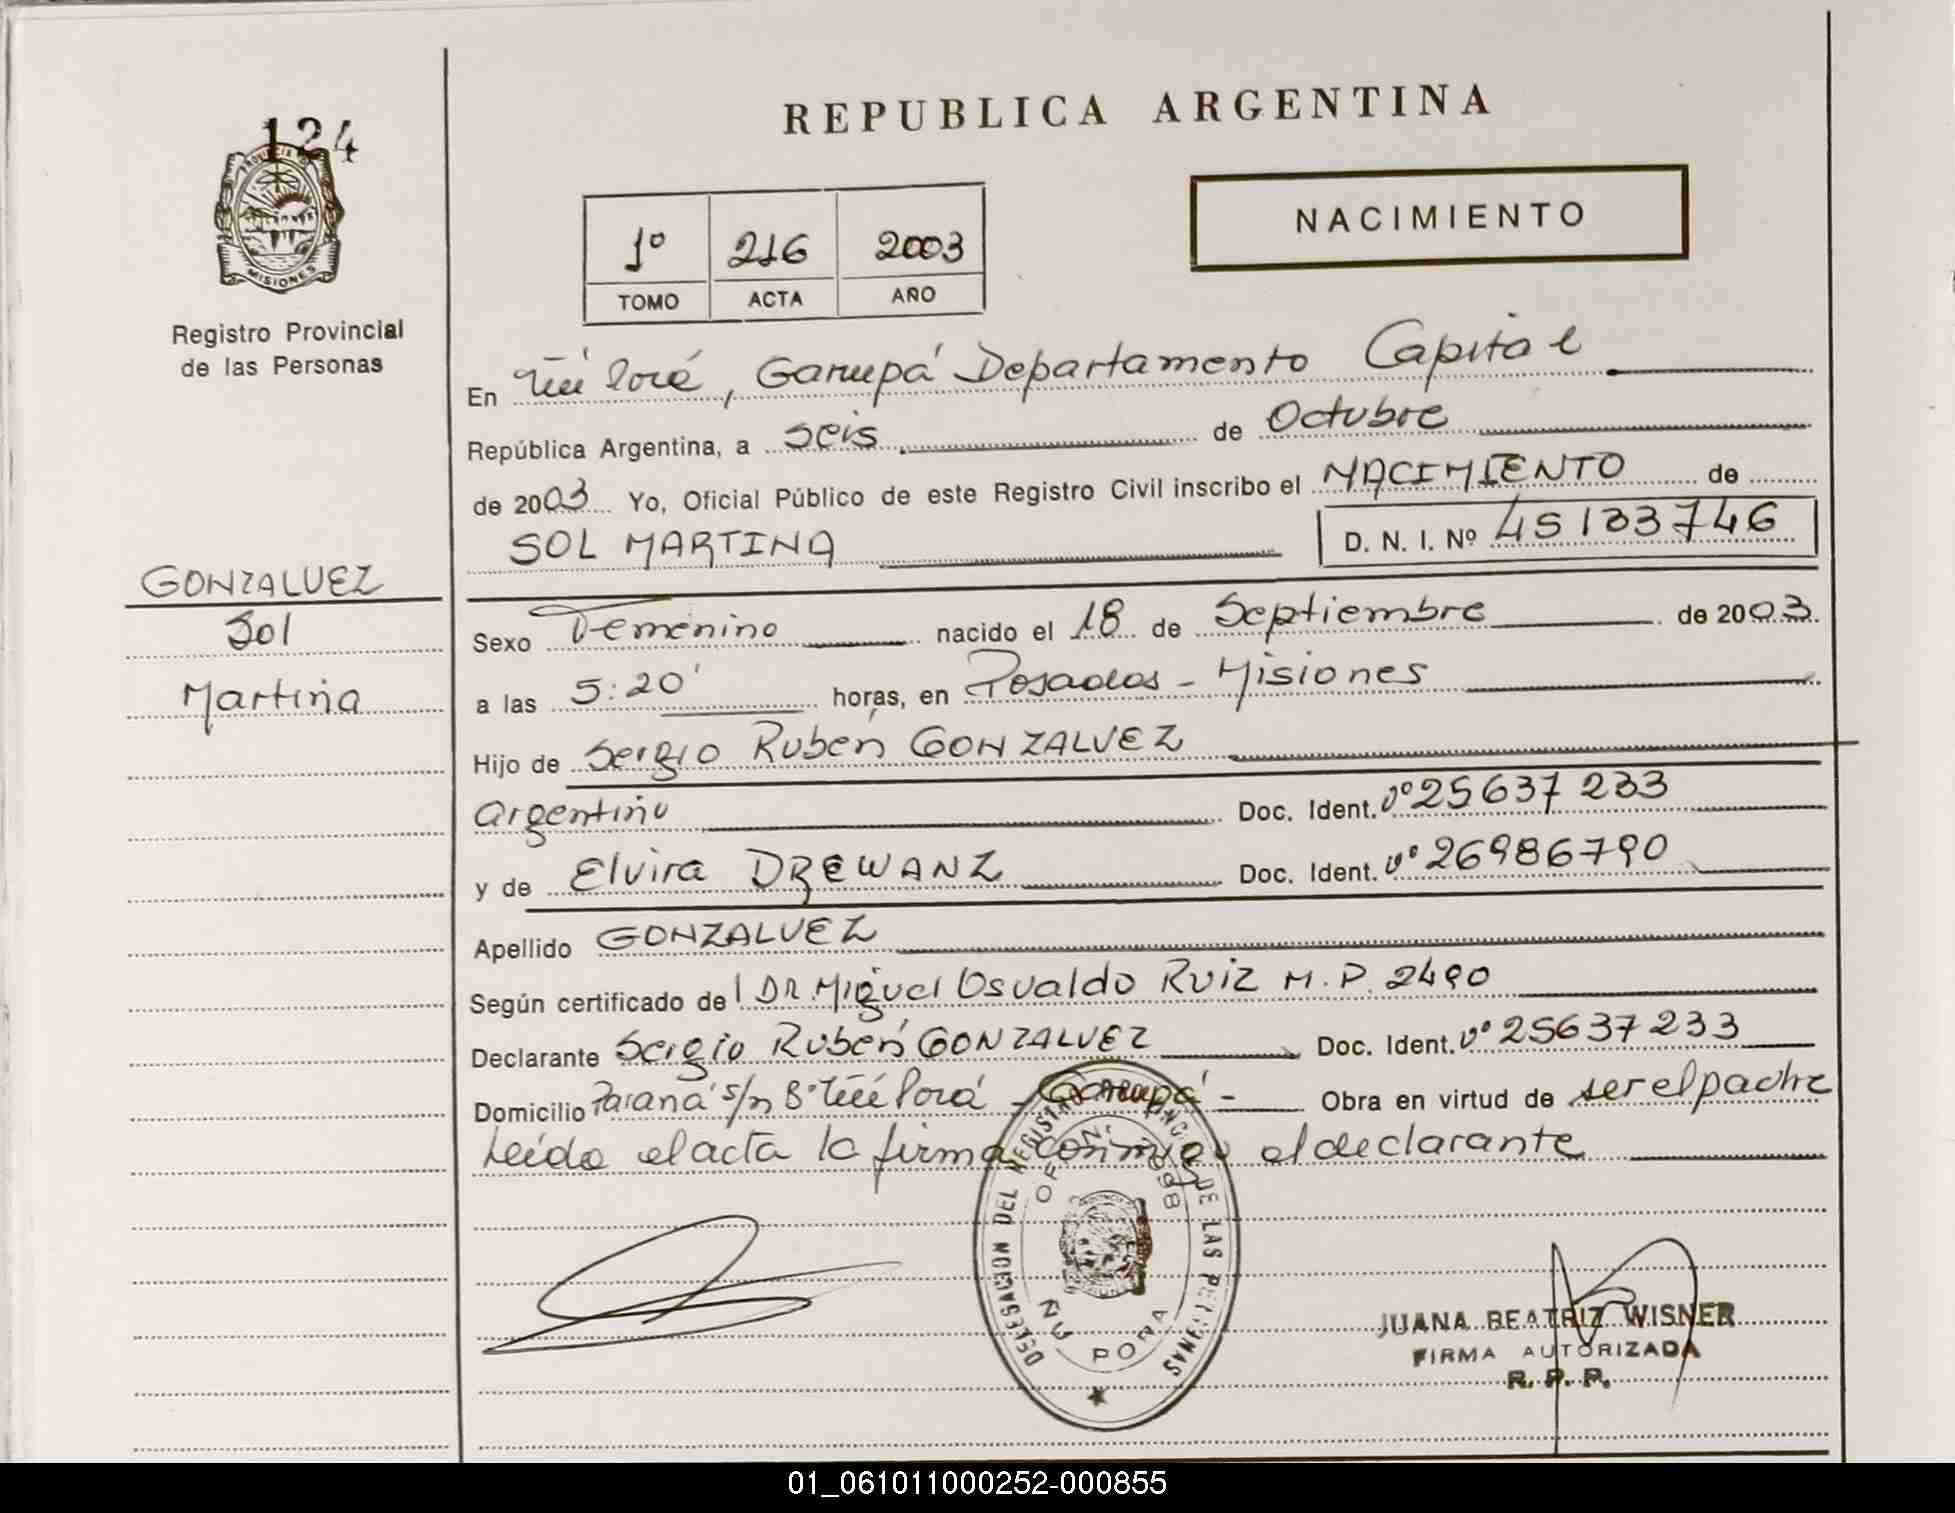 124
PROVINCIA DE
MISIONES
Registro Provincial
de las Personas
GONZALVEZ
Sol
Martina
REPUBLICA ARGENTINA
1º 216 2003
TOMO ACTA AÑO
NACIMIENTO
En Ñu Porá, Garupá Departamento Capital
República Argentina, a seis de Octubre
de 2003 Yo, Oficial Público de este Registro Civil inscribo el NACIMIENTO de
SOL MARTINA D. N. I. Nº 45133746
Sexo Femenino nacido el 18 de Septiembre de 2003.
a las 5:20' horas, en Posadas - Misiones
Hijo de Sergio Rubén GONZALVEZ
argentino Doc. Ident. Nº 25637233
y de Elvira DREWANZ Doc. Ident. Nº 26986790
Apellido GONZALVEZ
Según certificado del DR. Miguel Osvaldo Ruiz M.P. 2490
Declarante Sergio Rubén GONZALVEZ Doc. Ident. Nº 25637233
Domicilio Paraná s/n Bº Ñu Porá - Garupá - Obra en virtud de ser el padre
Leída el acta la firma conmigo el declarante
DELEGACION DEL REGISTRO PROVINCIAL DE LAS PERSONAS
ÑU PORA
JUANA BEATRIZ WISNER
FIRMA AUTORIZADA
R. P. P.
01_061011000252-000855